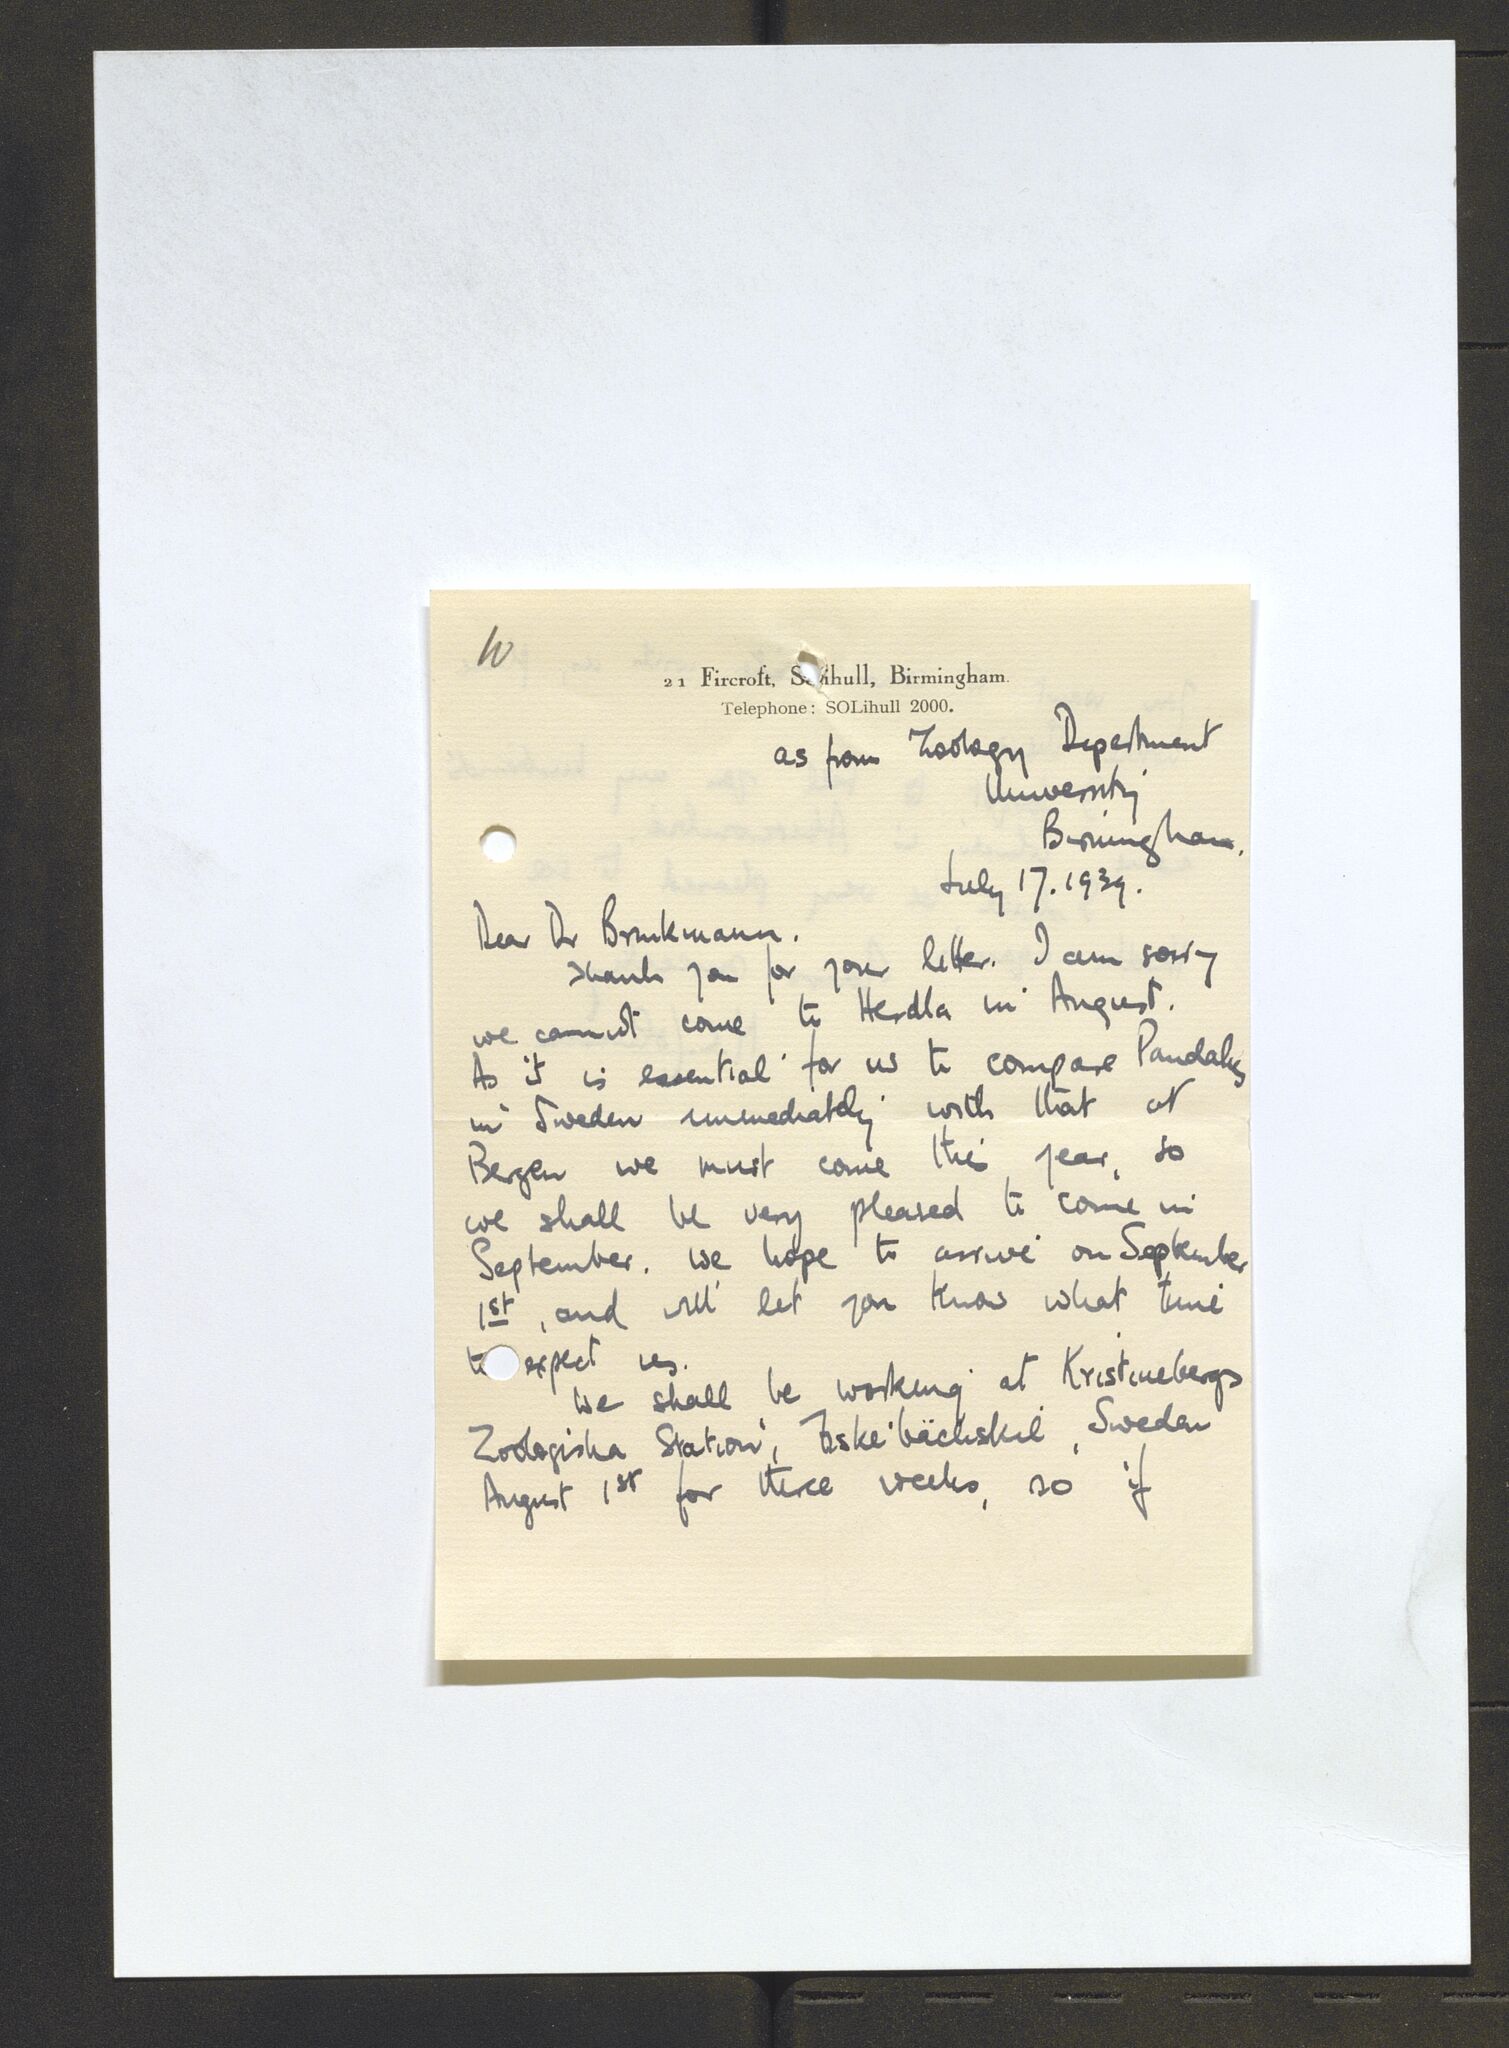 21 Fircroft, Solihull, Birmingham.
Telephone: SOLihull 2000.
as from Zoology Department
University
Birmingham.
July 17. 1939.
Dear Dr Brinkmann.
Thank you for your letter. I am sorry
we cannot come to Herdla in August.
As it is essential for us to compare Pandalus
in Sweden immediately with that at
Bergen we must come this year, so
we shall be very pleased to come in
September. We hope to arrive on September
1st, and will let you know what time
to expect us.
We shall be working at Kristinebergs
Zoologiska Station, Fiskebäckskil, Sweden
August 1st for three weeks, so if